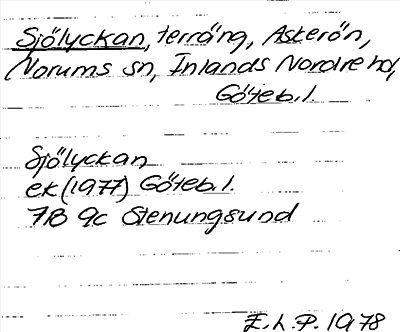 Sjölyckan, terräng, Askerön,
Norums sn, Inlands Nordre hd,
Göteb. l.
Sjölyckan
ek (1977) Göteb. l.
7B 9c Stenungsund
E. L. P. 1978